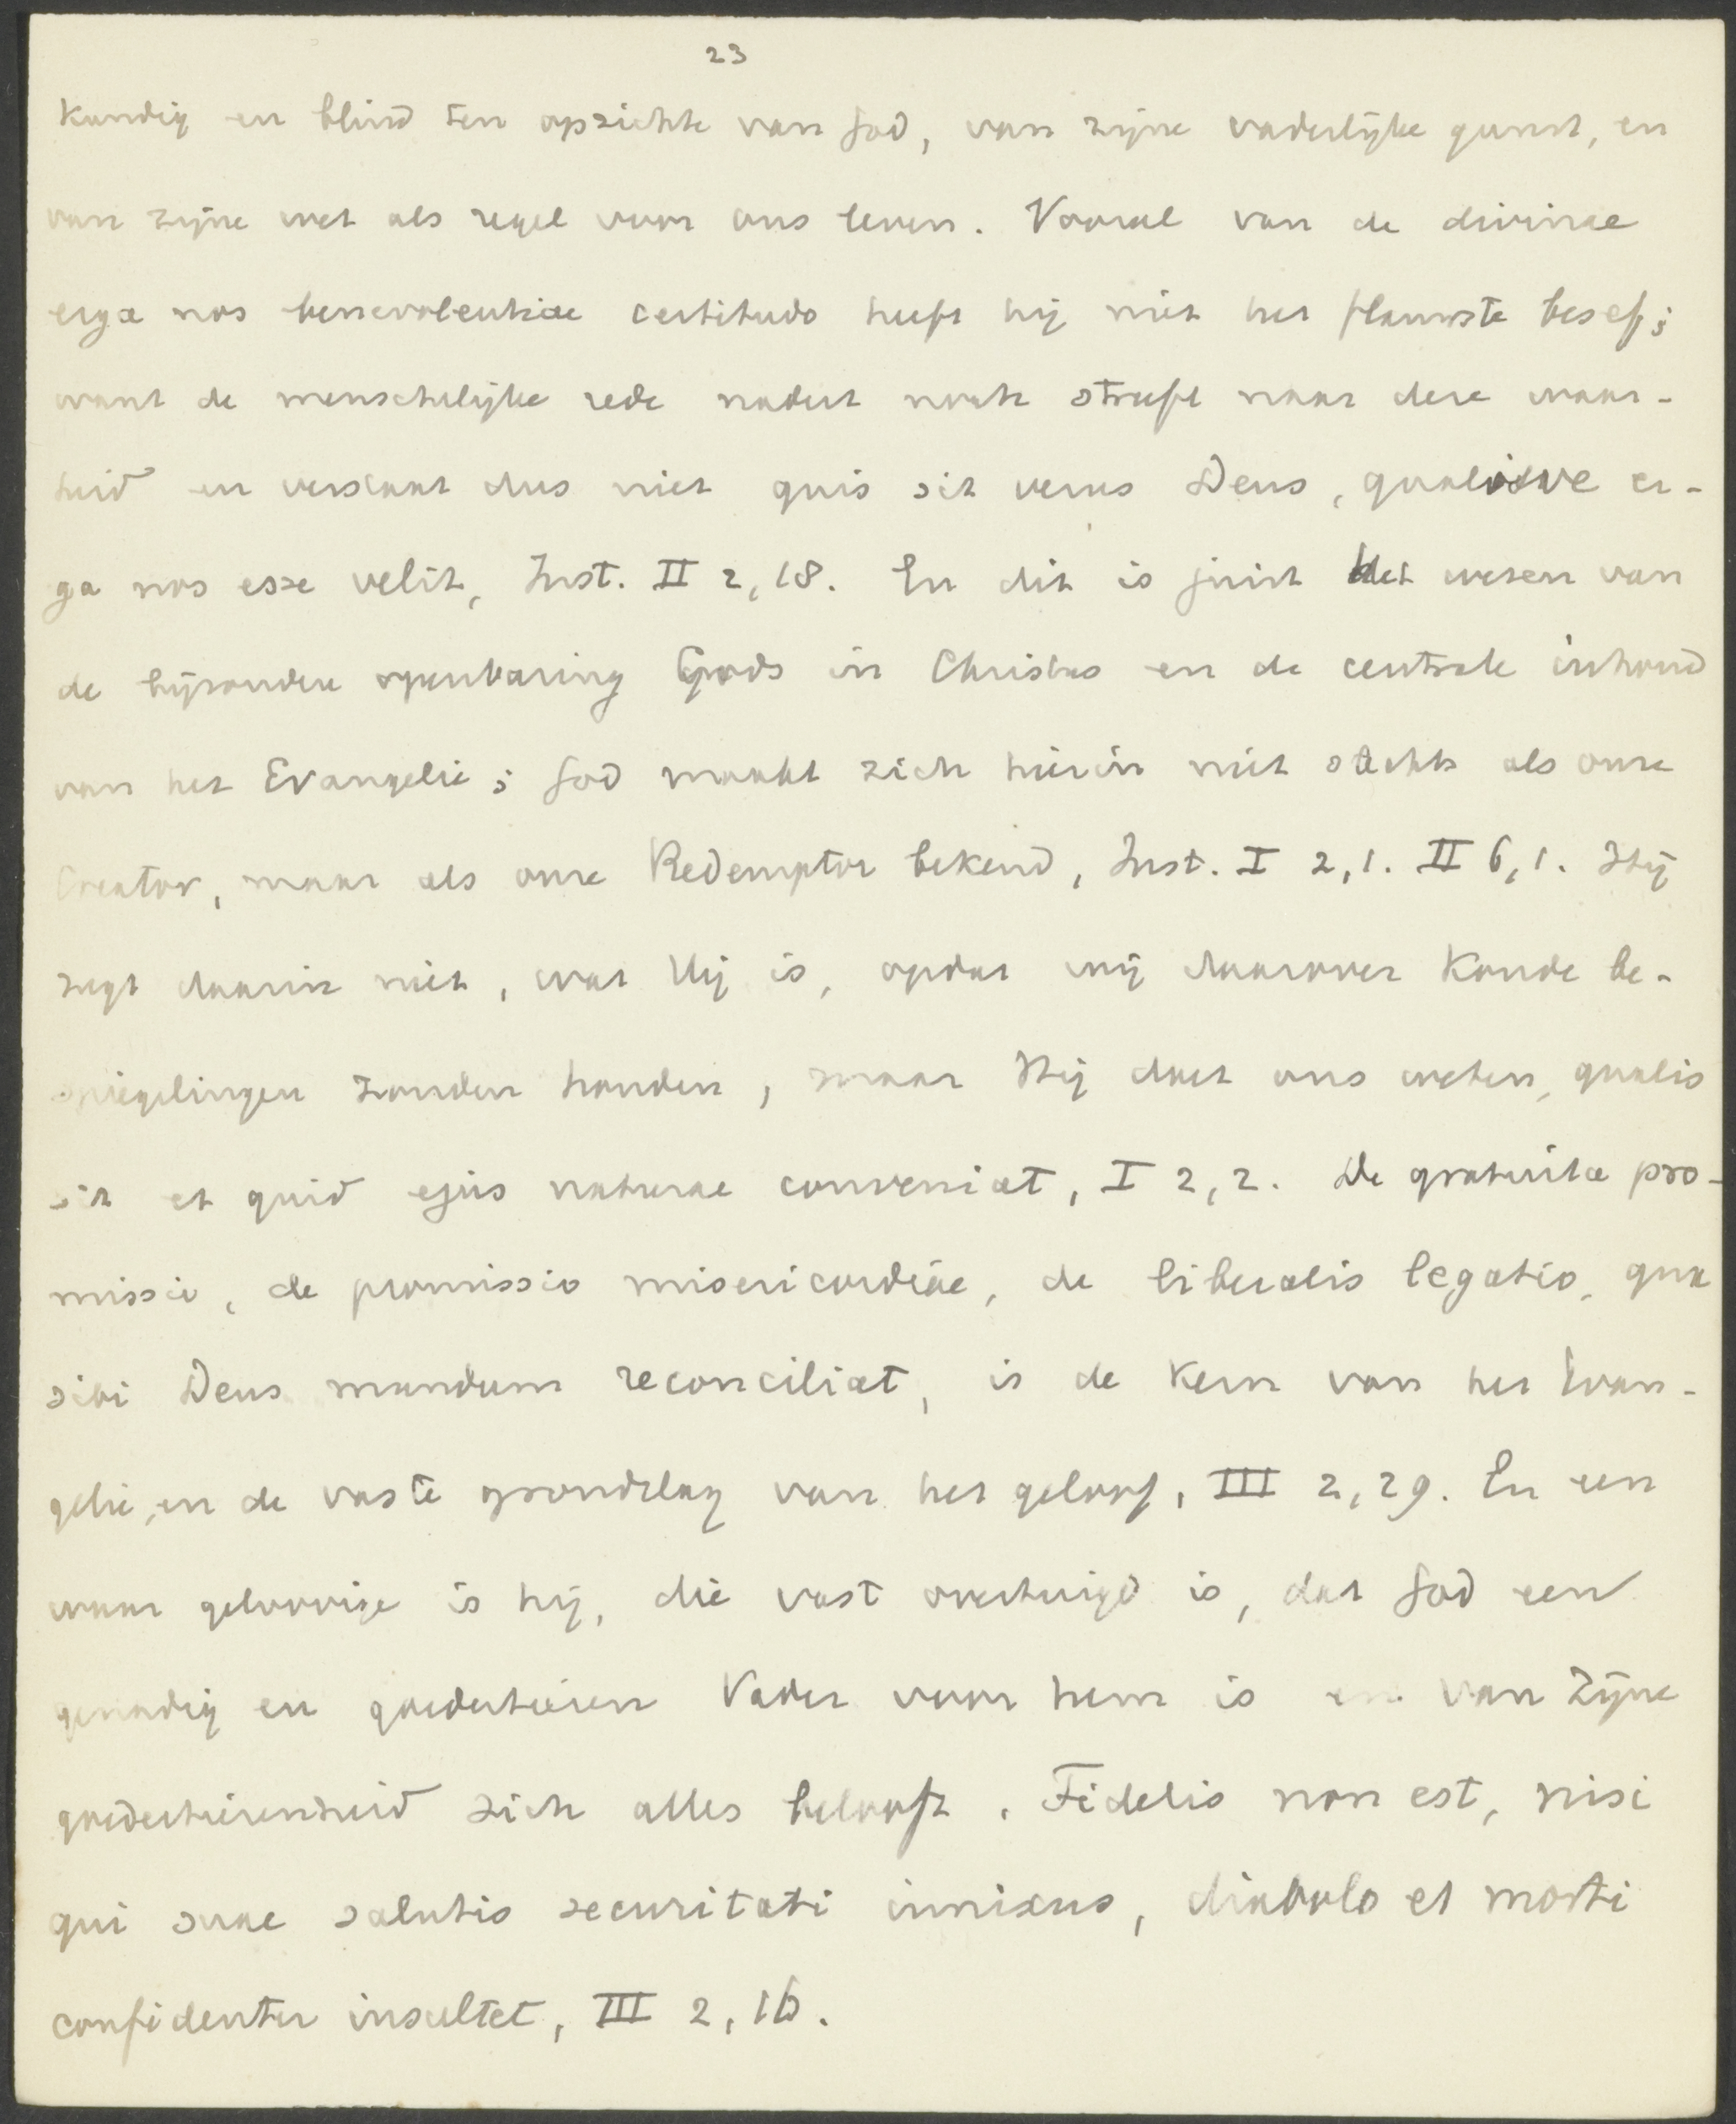 23
kundig en blind ten opzichte van God, van zijne vaderlijke gunst, en
van zijne wet als regel voor ons leven. Vooral van de divinae
erga nos benevolentiae certitudo heeft hij niet het flauwste besef;
want de menschelijke rede nadert noch streeft naar deze waar-
heid en verstaat dus niet quis sit verus Deus, qualisve er-
ga nos esse velit, Inst. II 2, 18. En dit is juist het wezen van
de bijzondere openbaring Gods in Christus en de centrale inhoud
van het Evangelie; God maakt zich hierin niet slechts als onze
Creator, maar als onze Redemptor bekend, Inst. I 2, 1. II 6, 1. Hij
zegt daarin niet, wat Hij is, opdat wij daarover koude be-
spiegelingen zouden houden, maar Hij doet ons weten, qualis
sit et quid ejus naturae conveniat, I 2, 2. De gratuita pro-
missio, de promissio misericordiae, de liberalis legatio, qua
sibi Deus mundum reconciliat, is de kern van het Evan-
gelie, en de vaste grondslag van het geloof, III 2, 29. En een
waar geloovige is hij, die vast overtuigd is, dat God een
genadig en goedertieren Vader voor hem is en van Zijne
goedertierenheid zich alles belooft. Fidelis non est, nisi
qui suae salutis securitati innixus, diabolo et morti
confidenter insultet, III 2, 16.